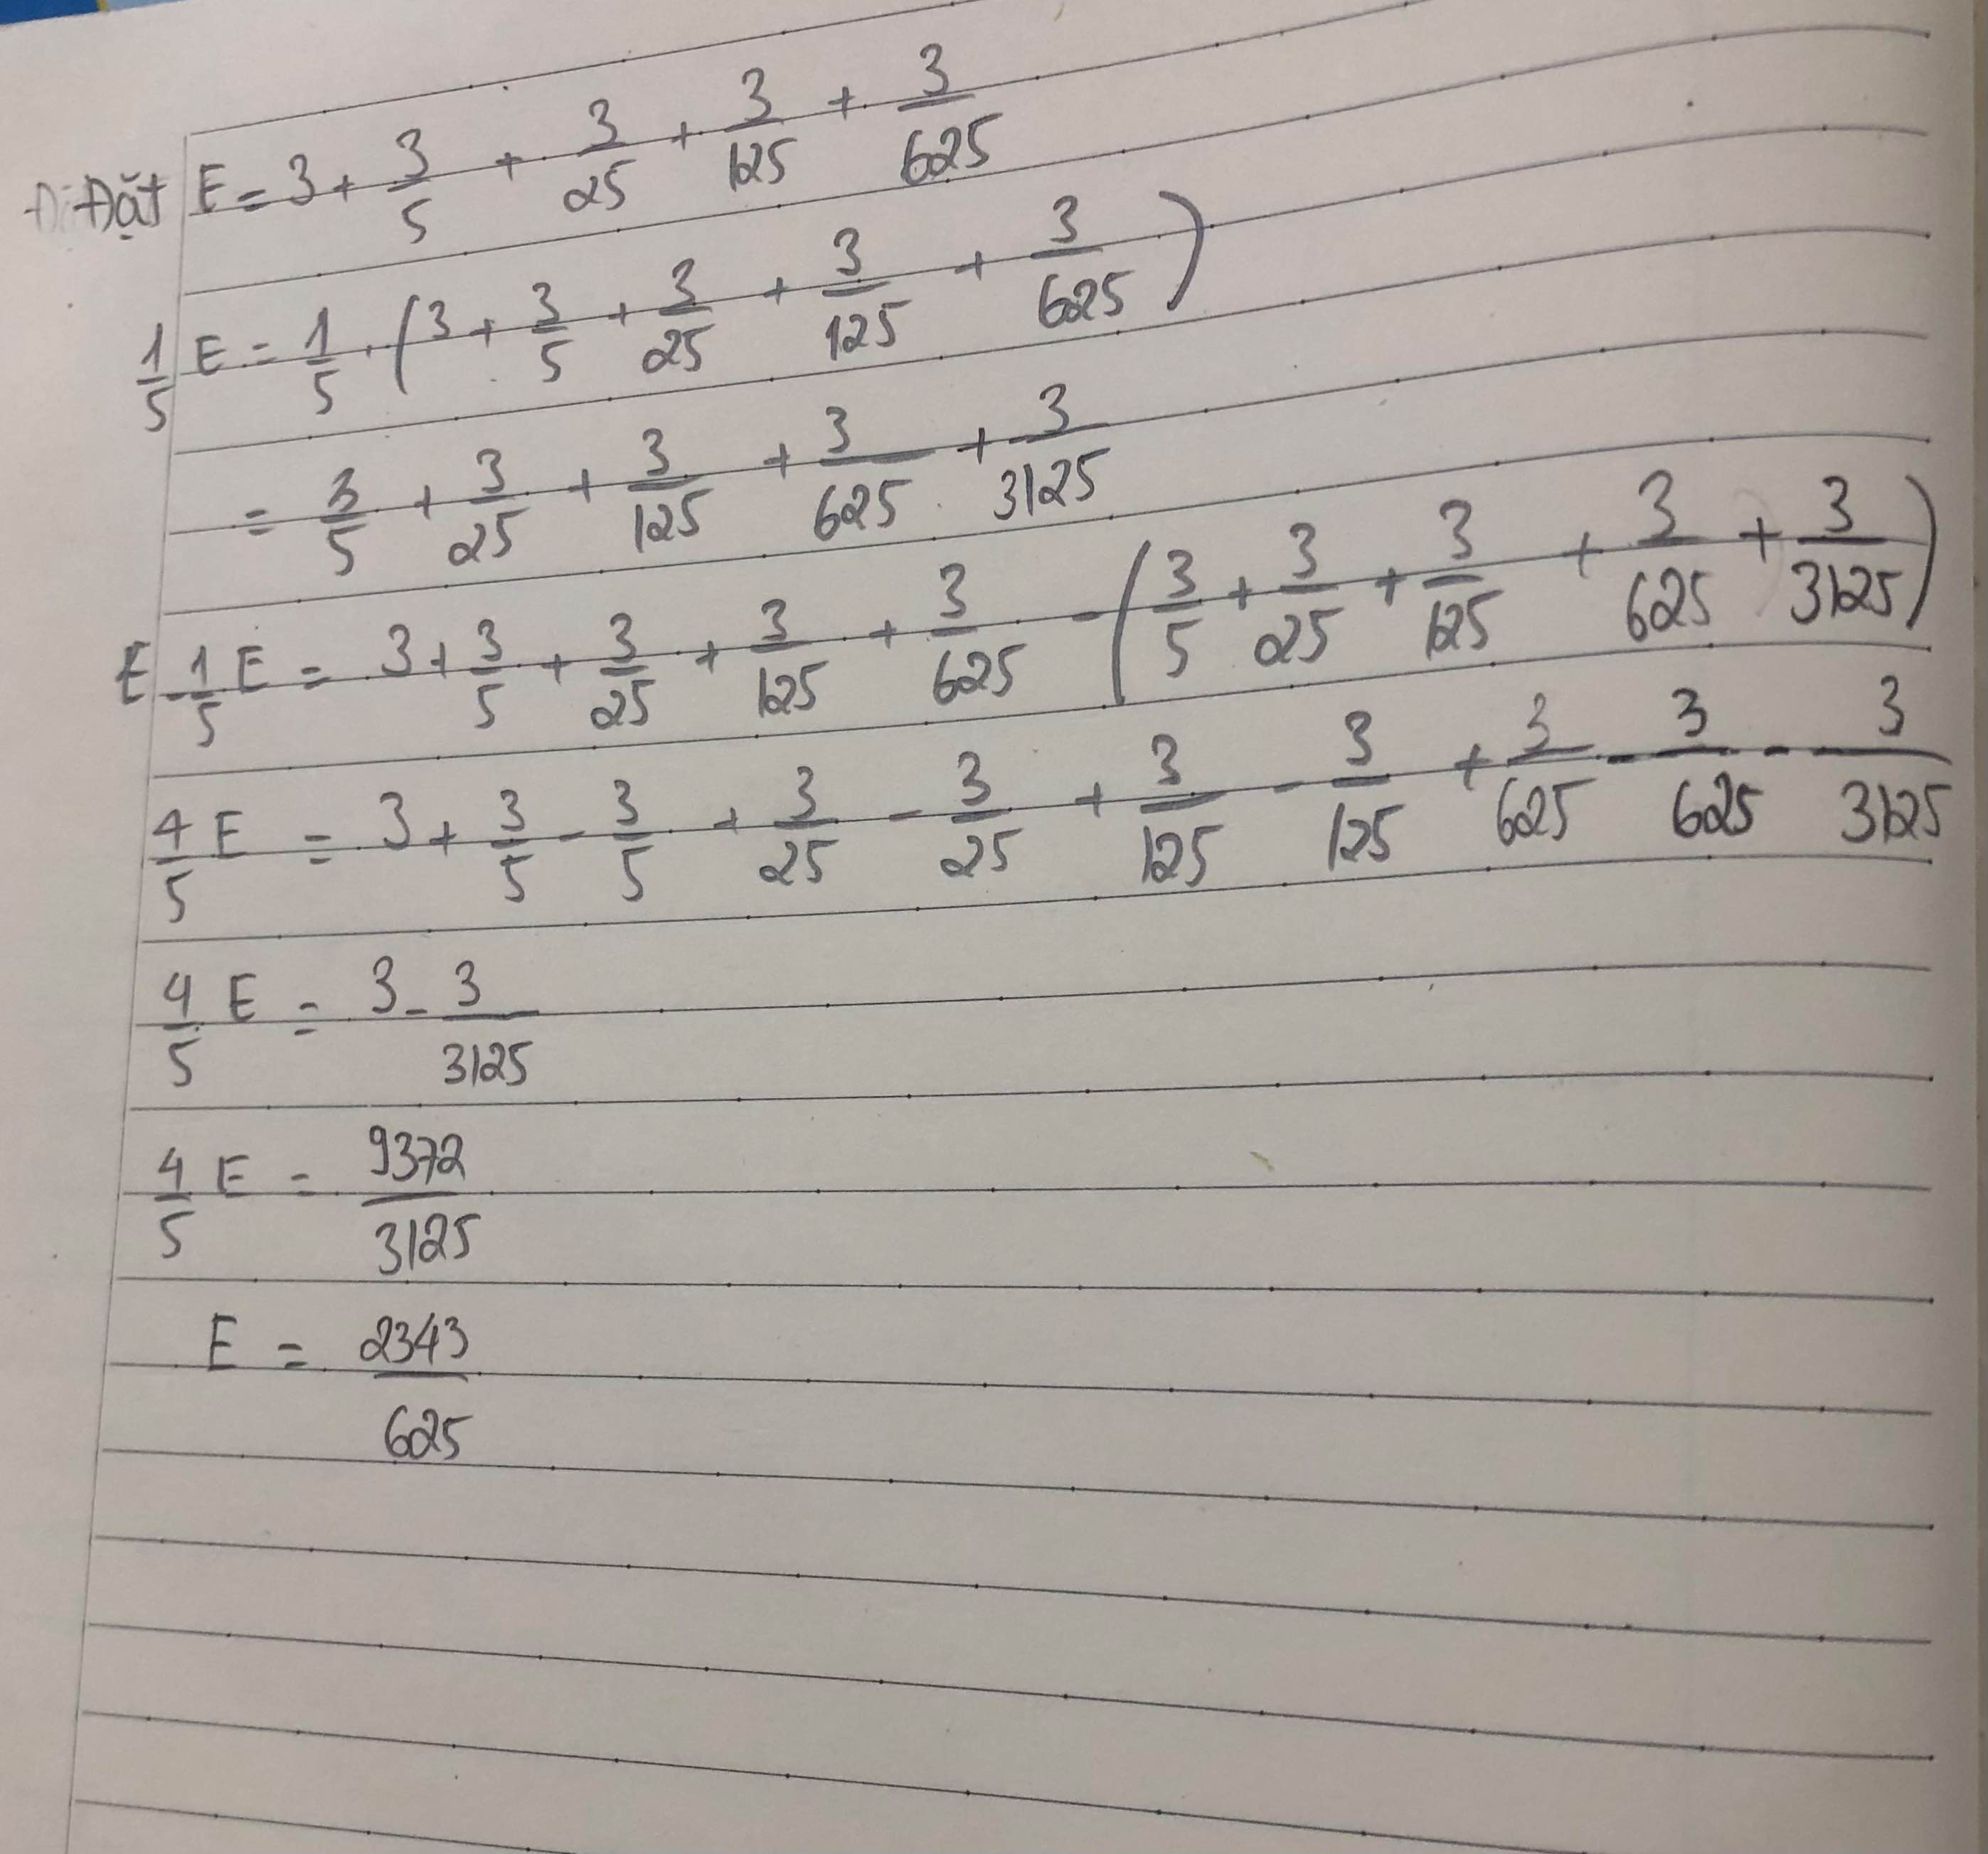 Đặt E = 3 + 3/5 + 3/25 + 3/125 + 3/625
1/5 E = 1/5 . (3 + 3/5 + 3/25 + 3/125 + 3/625)
= 3/5 + 3/25 + 3/125 + 3/625 + 3/3125
E - 1/5 E = 3 + 3/5 + 3/25 + 3/125 + 3/625 - (3/5 + 3/25 + 3/125 + 3/625 + 3/3125)
4/5 E = 3 + 3/5 - 3/5 + 3/25 - 3/25 + 3/125 - 3/125 + 3/625 - 3/625 - 3/3125
4/5 E = 3 - 3/3125
4/5 E = 9372/3125
E = 2343/625